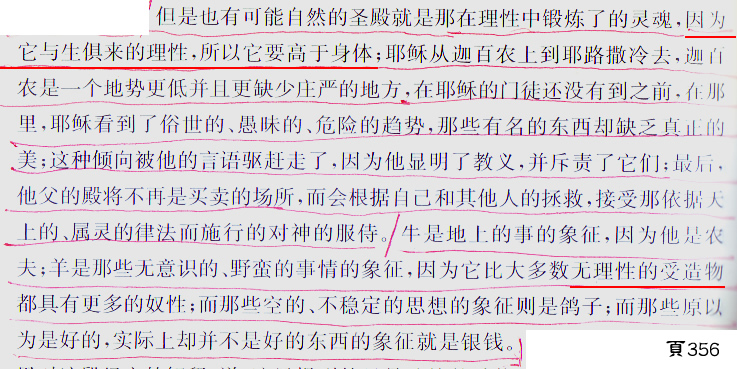 但是也有可能自然的圣殿就是那在理性中锻炼了的灵魂,因为
它与生俱来的理性,所以它要高于身体;耶稣从迦百农上到耶路撒冷去,迦百
农是一个地势更低并且更缺少庄严的地方,在耶稣的门徒还没有到之前,在那
里,耶稣看到了俗世的、愚昧的、危险的趋势,那些有名的东西却缺乏真正的
美;这种倾向被他的言语驱赶走了,因为他显明了教义,并斥责了它们;最后,
他父的殿将不再是买卖的场所,而会根据自己和其他人的拯救,接受那依据天
上的、属灵的律法而施行的对神的服侍。牛是地上的事的象征,因为他是农
夫;羊是那些无意识的、野蛮的事情的象征,因为它比大多数无理性的受造物
都具有更多的奴性;而那些空的、不稳定的思想的象征则是鸽子;而那些原以
为是好的,实际上却并不是好的东西的象征就是银钱。
頁356